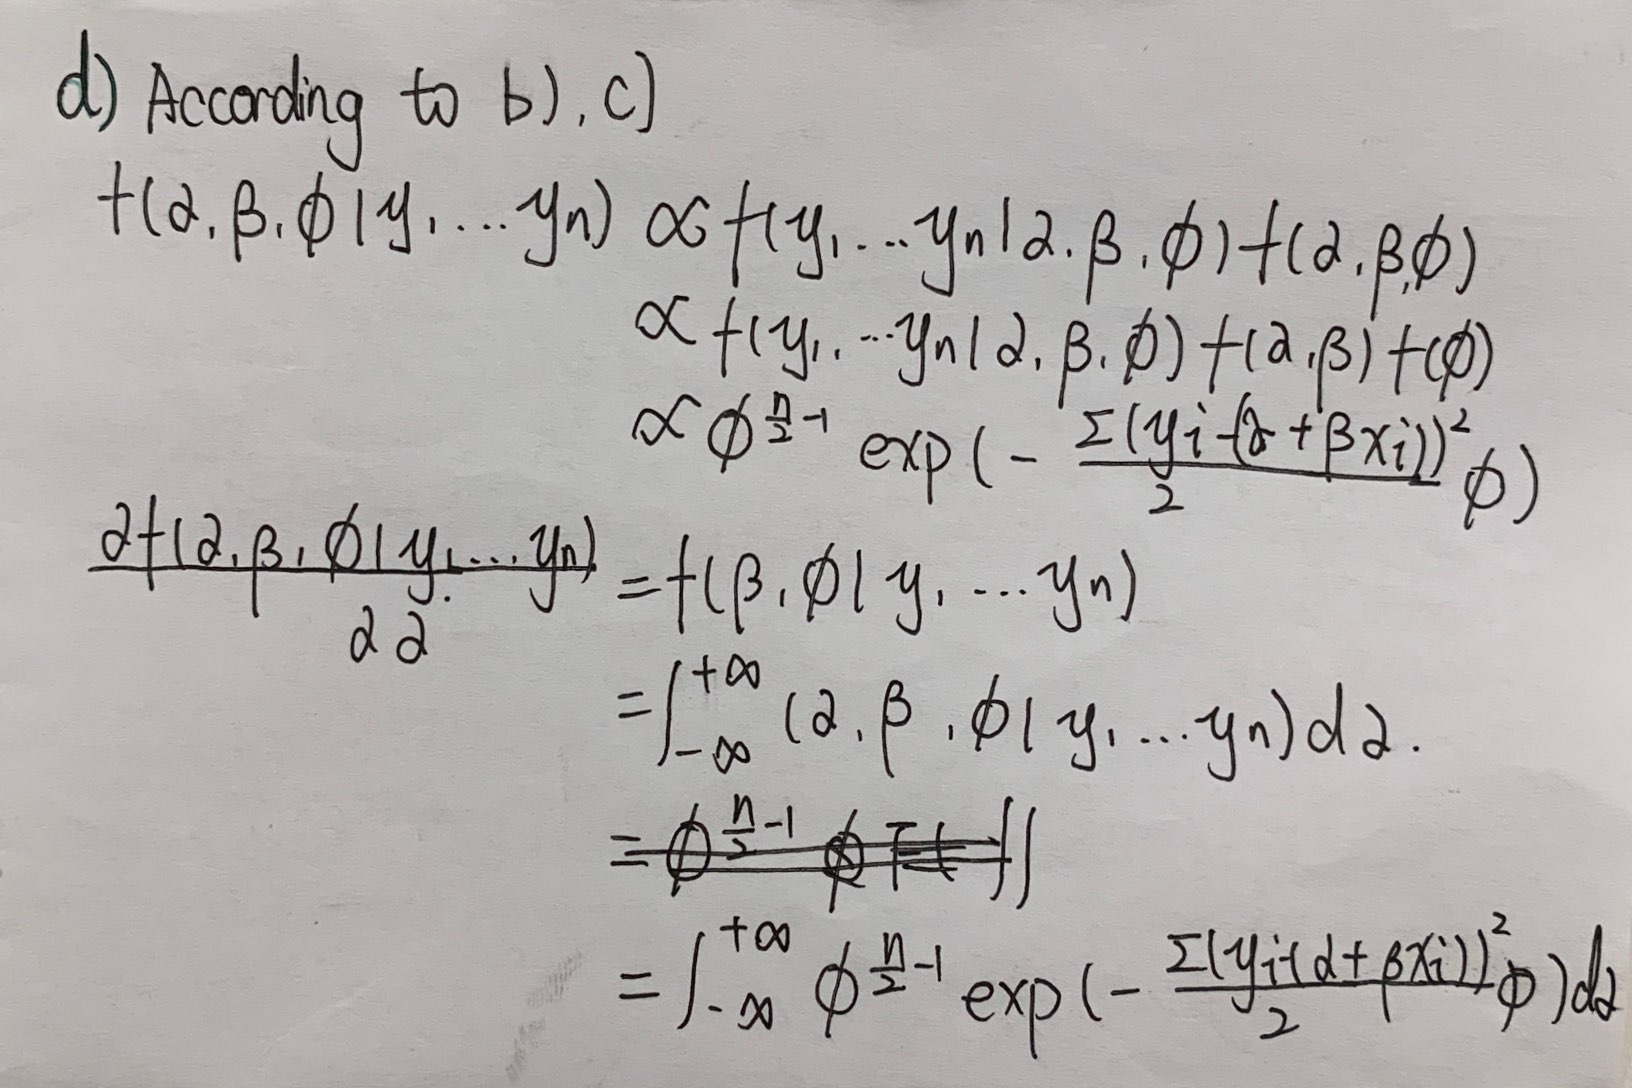 d) According to b), c)
f(α, β, ϕ | y₁, ... yₙ) ∝ f(y₁, ... yₙ | α, β, ϕ) f(α, β, ϕ)
∝ f(y₁, ... yₙ | α, β, ϕ) f(α, β) f(ϕ)
∝ ϕ^(n/2 - 1) exp(- Σ(yi - (α + βxi))²/2 ϕ)
∂f(α, β, ϕ | y₁, ... yₙ)/∂α = f(β, ϕ | y₁, ... yₙ)
= ∫_{-∞}^{+∞} (α, β, ϕ | y₁, ... yₙ) dα.
= ϕ^(n/2 - 1)
= ∫_{-∞}^{+∞} ϕ^(n/2 - 1) exp(- Σ(yi - (α + βxi))²/2 ϕ) dα